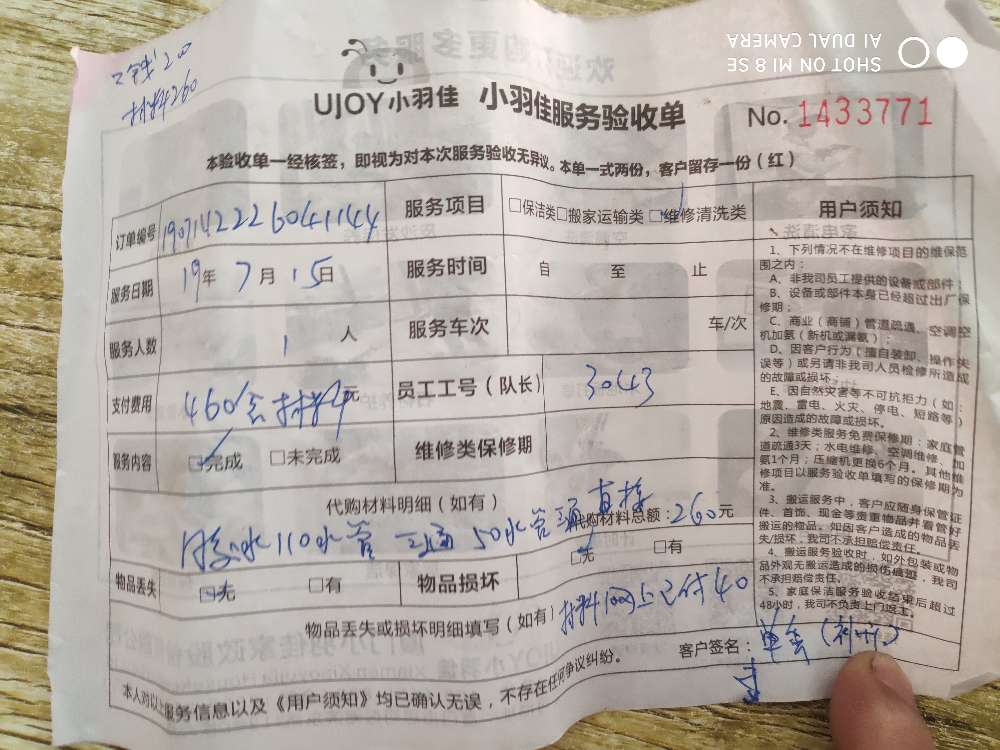 SHOT ON MI 8 SE
AI DUAL CAMERA
工钱200
材料260
UJOY小羽佳 小羽佳服务验收单
No. 1433771
本验收单一经核签，即视为对本次服务验收无异议。本单一式两份，客户留存一份（红）
订单编号 1907142226041144
服务项目 □保洁类□搬家运输类□维修清洗类
服务日期 19年7月15日
服务时间 自 至 止
服务人数 1人
服务车次 车/次
支付费用 460含材料元
员工工号（队长） 3043
服务内容 □完成 □未完成
维修类保修期
代购材料明细（如有）
胶水110水管 三通 50水管 三通 直接
代购材料总额：260元
物品丢失 □无 □有
物品损坏 □无 □有
物品丢失或损坏明细填写（如有）
材料 网上已付40
客户签名：
本人对以上服务信息以及《用户须知》均已确认无误，不存在任何争议纠纷。
用户须知
1、下列情况不在维修项目的维保范
围之内：
A、非我司员工提供的设备或部件；
B、设备或部件本身已经超过出厂保
修期；
C、商业（商铺）管道疏通、空调空
机加氨（新机或漏氨）；
D、因客户行为（擅自装卸、操作失
误等）或另请非我司人员检修所造成
的故障或损坏；
E、因自然灾害等不可抗拒力（如：
地震、雷电、火灾、停电、短路等）
原因造成的故障或损坏。
2、维修类服务免费保修期：家庭管
道疏通3天；水电维修、空调维修、加
氨1个月；压缩机更换6个月。其他维
修项目以服务验收单填写的保修期为
准。
3、搬运服务中，客户应随身保管证
件、首饰、现金等贵重物品并看管好
搬运的物品。如因客户造成的物品丢
失/损坏，我司不承担赔偿责任。
4、搬运服务验收时，如外包装或物
品外观无搬运造成的损伤痕迹，我司
不承担赔偿责任。
5、家庭保洁服务验收结束后超过
48小时，我司不负责上门返工。